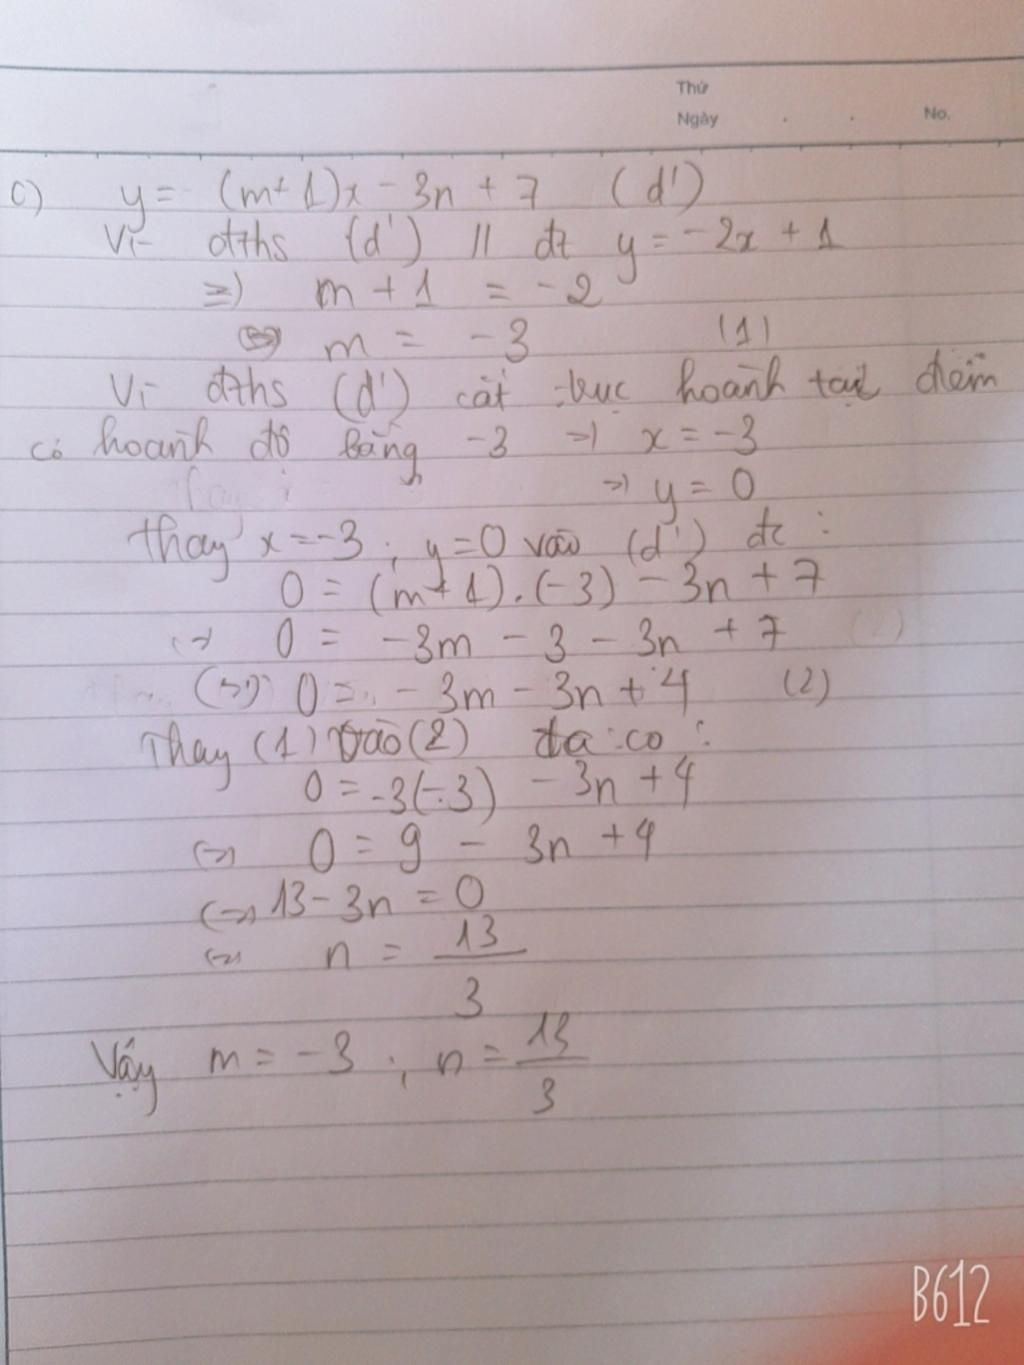 Thứ
Ngày No.
c) y = (m+1)x - 3n + 7 (d')
Vì đths (d') // đt y = -2x + 1
=> m + 1 = -2
<=> m = -3 (1)
Vì đths (d') cắt trục hoành tại điểm
có hoành độ bằng -3 => x = -3
=> y = 0
Thay x = -3 ; y = 0 vào (d') đc :
0 = (m+1).(-3) - 3n + 7
<=> 0 = -3m - 3 - 3n + 7 (2)
<=> 0 = -3m - 3n + 4 (2)
Thay (1) vào (2) ta có :
0 = -3(-3) - 3n + 4
<=> 0 = 9 - 3n + 4
<=> 13 - 3n = 0
<=> n = 13/3
Vậy m = -3 ; n = 13/3
B612